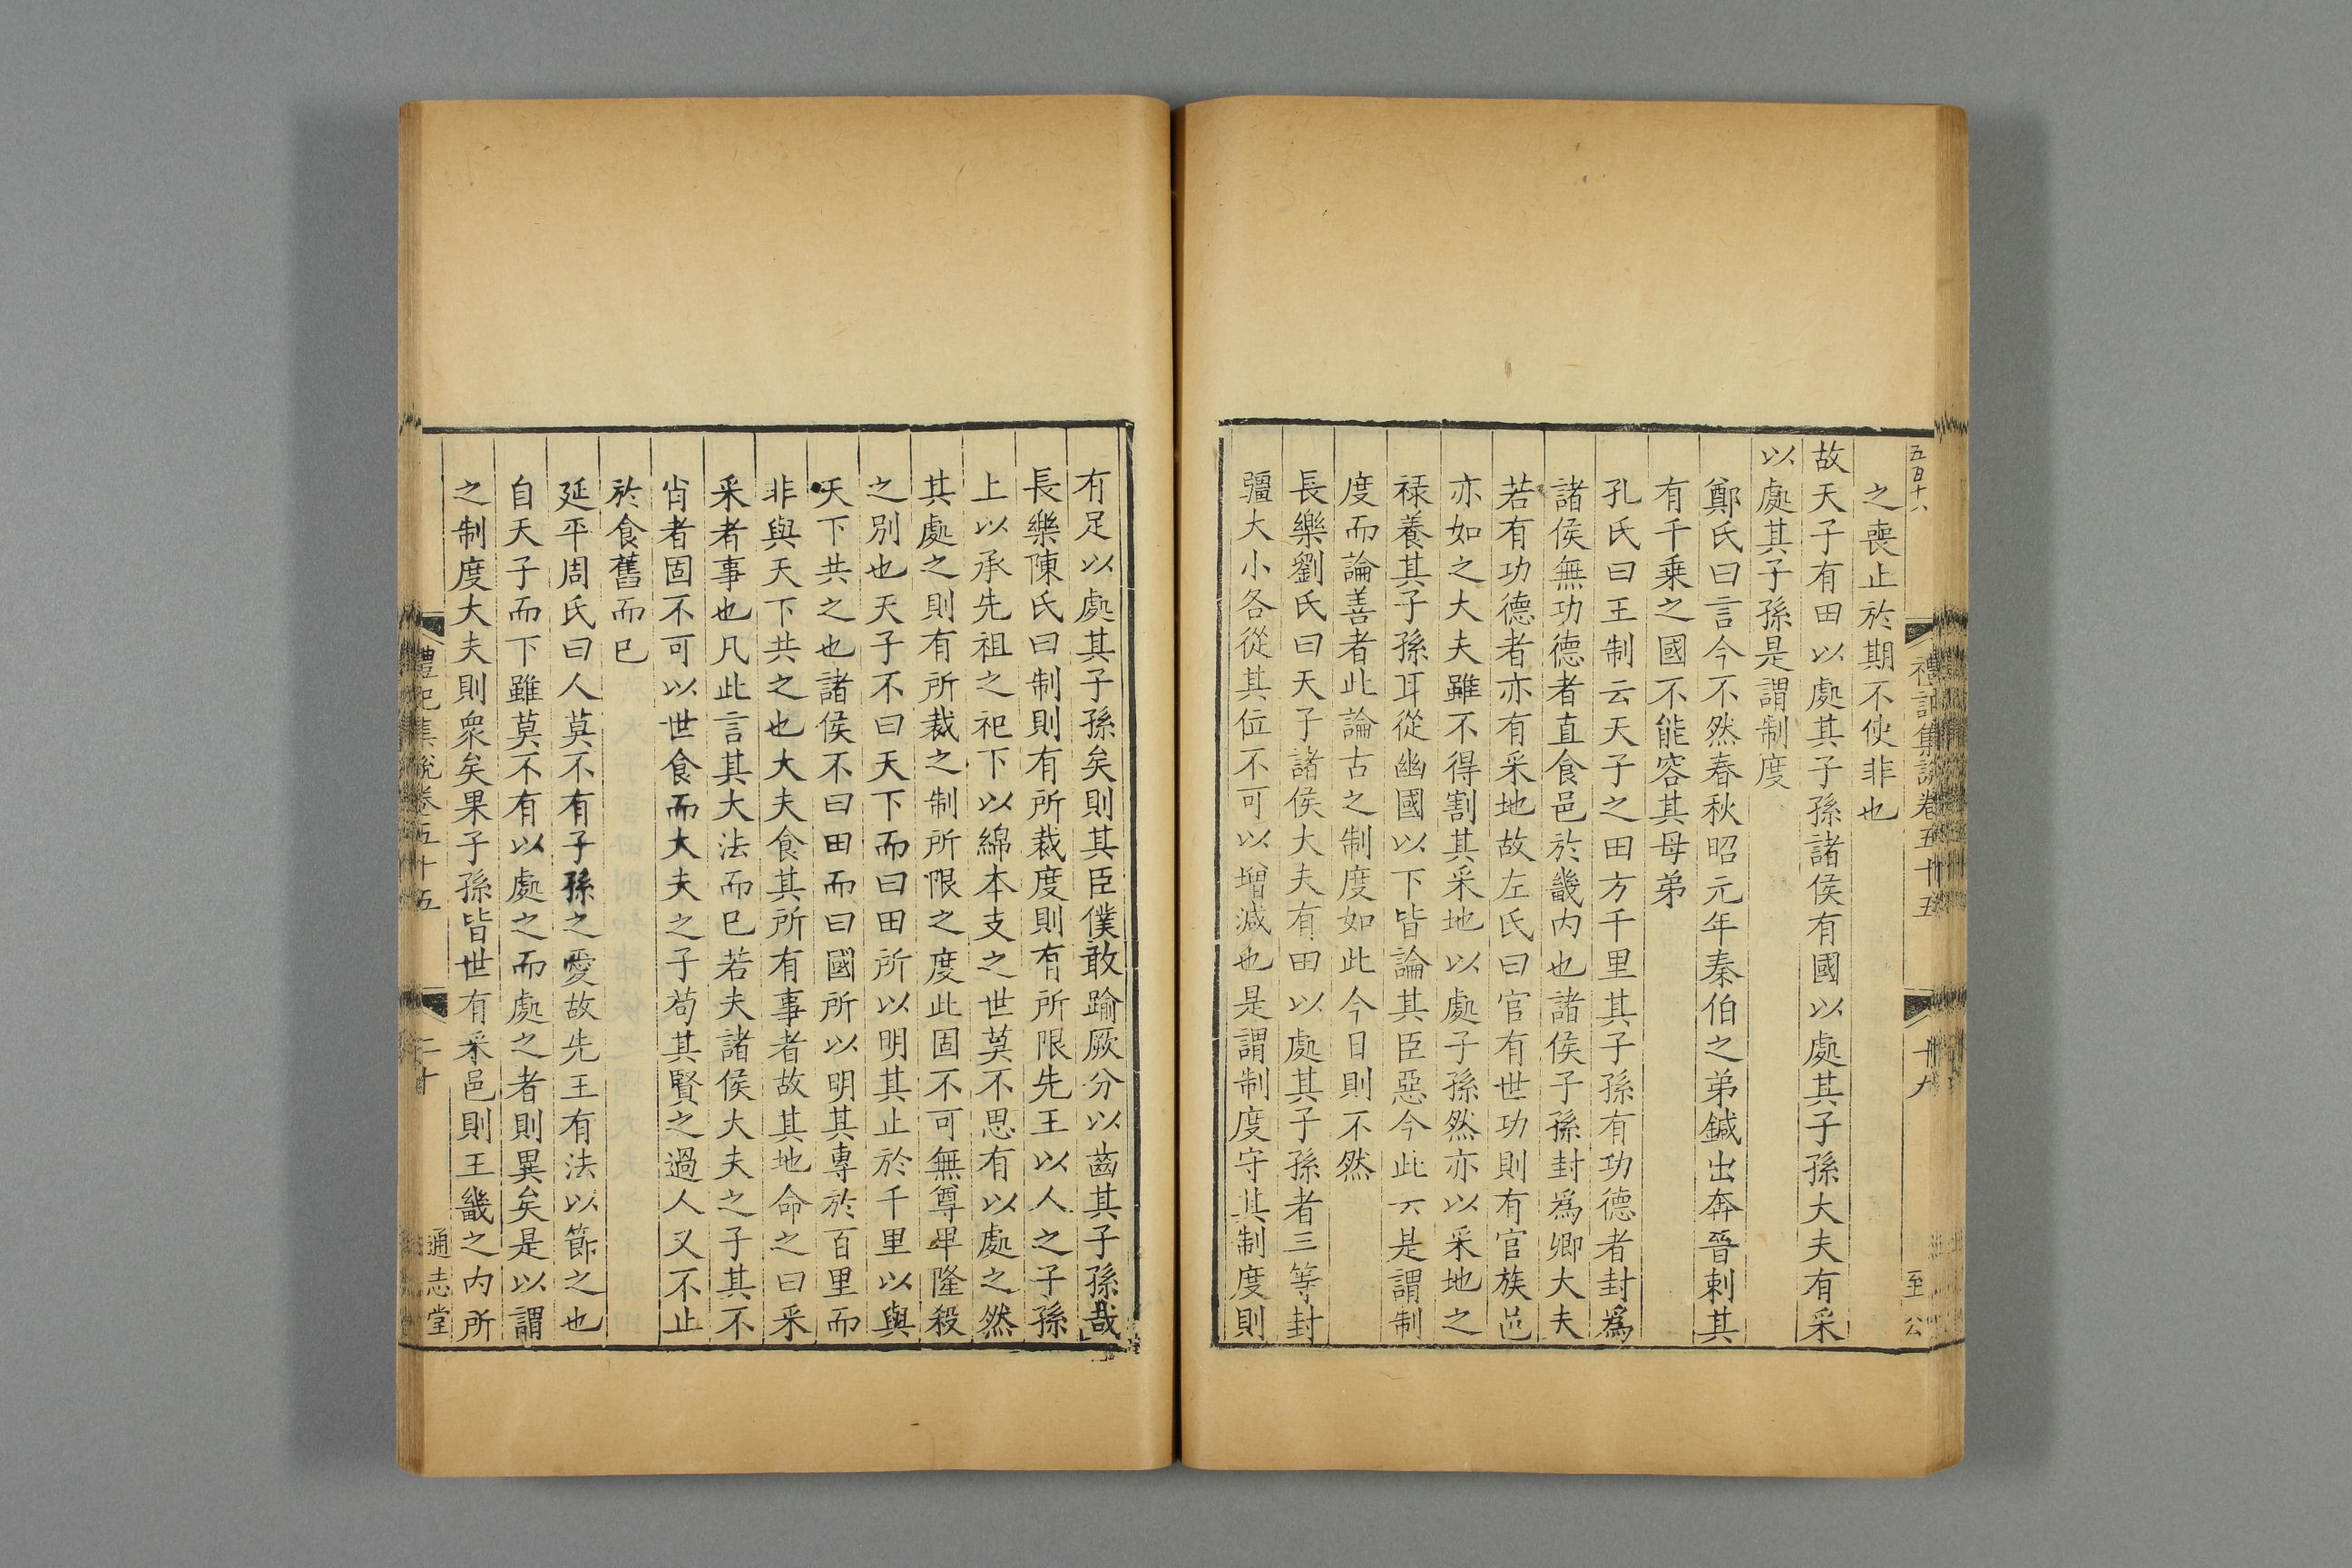 五百十八
禮記集説卷五十五
十九
至公
之喪止於期不使非也
故天子有田以處其子孫諸侯有國以處其子孫大夫有采
以處其子孫是謂制度
鄭氏曰言今不然春秋昭元年秦伯之弟鍼出奔晉刺其
有千乗之國不能容其母弟
孔氏曰王制云天子之田方千里其子孫有功德者封爲
諸侯無功德者直食邑於畿内也諸侯子孫封爲卿大夫
若有功德者亦有采地故左氏曰官有世功則有官族邑
亦如之大夫雖不得割其采地以處子孫然亦以采地之
禄養其子孫耳從幽國以下皆論其臣惡今此下是謂制
度而論善者此論古之制度如此今日則不然
長樂劉氏曰天子諸侯大夫有田以處其子孫者三等封
疆大小各從其位不可以增減也是謂制度守其制度則
有足以處其子孫矣則其臣僕敢踰厥分以齒其子孫哉
長樂陳氏曰制則有所裁度則有所限先王以人之子孫
上以承先祖之祀下以綿本支之世莫不思有以處之然
其處之則有所裁之制所限之度此固不可無尊甲隆殺
之别也天子不曰天下而曰田所以明其止於千里以與
天下共之也諸侯不曰田而曰國所以明其專於百里而
非與天下共之也大夫食其所有事者故其地命之曰采
采者事也凡此言其大法而已若夫諸侯大夫之子其不
肖者固不可以世食而大夫之子苟其賢之過人又不止
於食舊而已
延平周氏曰人莫不有子孫之愛故先王有法以節之也
自天子而下雖莫不有以處之而處之者則異矣是以謂
之制度大夫則衆矣果子孫皆世有采邑則王畿之内所
禮記集説卷五十五
二十
通志堂